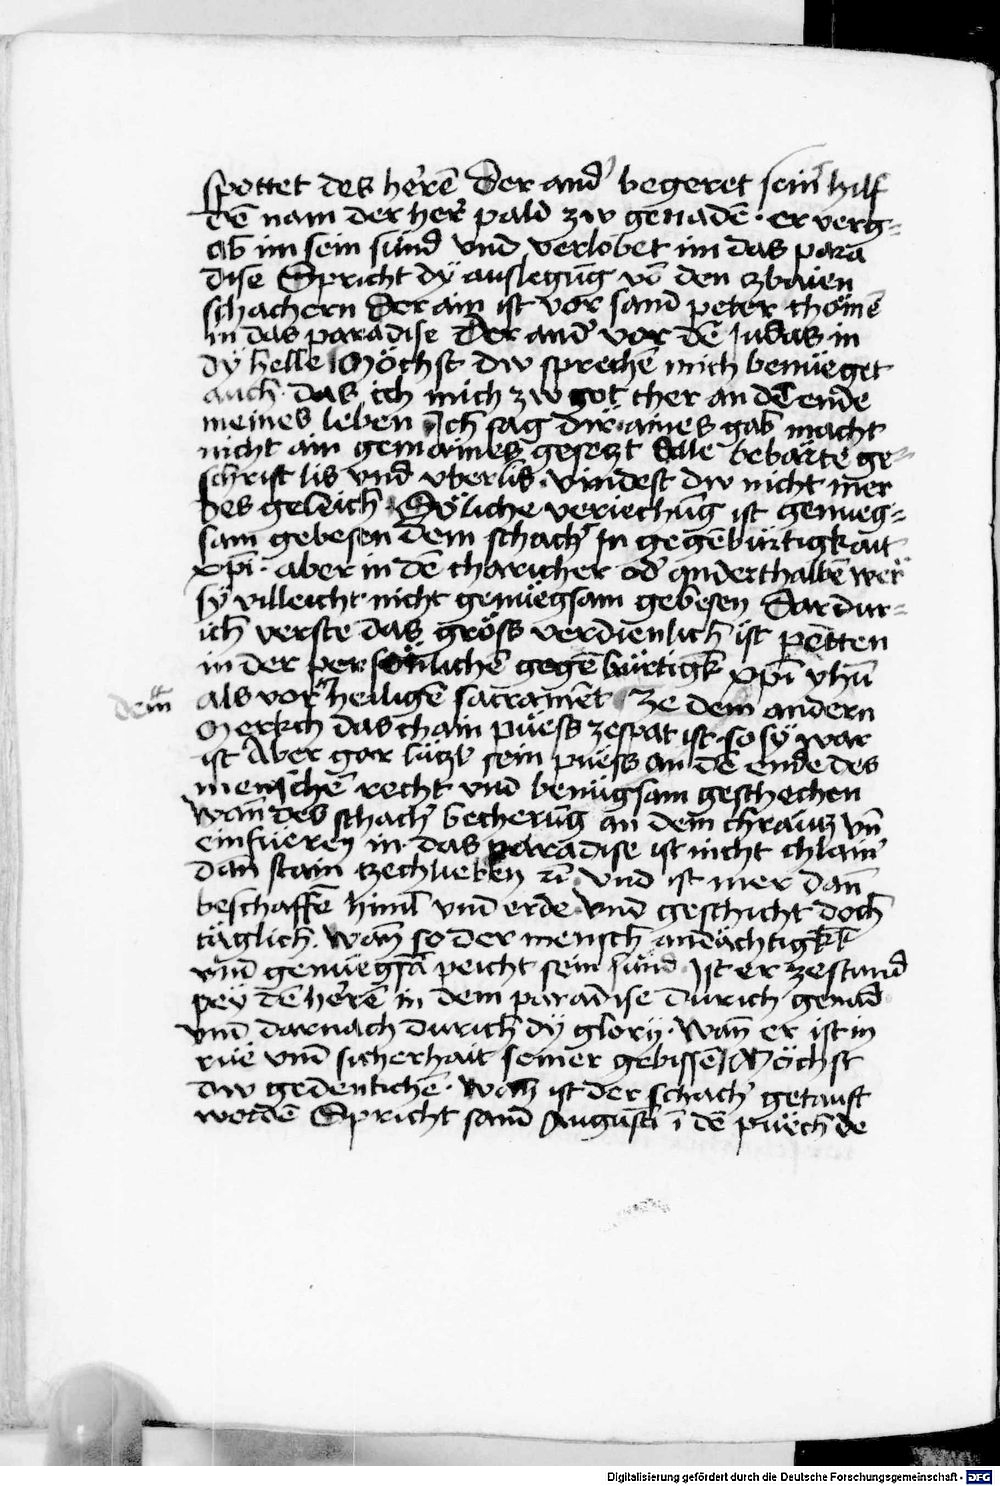 spottet des herrē Der and' begeret sein' hilf
dē nam der her' pald zw genadē · er verg=
ab im sein sünd vnd verlobet im das para
dise Spricht dÿ auslegūg vō den zbaien
schachern Der ain ist vor sand peter chömē
in das paradise Der and' vor dē Judas in
dÿ helle Möchst dw sprechē mich benüeget
auch · das ich mich zw got cher an dē ende
meines leben Ich sag dir · aines gab macht
nicht ain gemaines gesetzt Alle bebärte ge=
schrift lis vnd vberlis · vindest dw nicht mer
des geleich · Söliche veriechūg ist genueg=
sam gebesen dem schach' In gegēbürtigkait
xp̄i · aber in dē charicher od' anderthalbē wer
sÿ villeicht nicht genüegsam gebesen Dardur=
ich verste das gröss verdienlich ist petten
in der persönlichē gegēbürtigk xp̄i ihū
dem
als vor heiligē sacramēt Ze dem andern
Merkch das chain püess zespat ist · so sÿ war
ist Aber gar lützl sein püess an dē ende des
menschē recht vnd benügsam geschechen
wān des schach' becherūg an dem chräutz vn̄
einfüeren in das paradise ist nicht chlain'
dan stain zechlieben rc̄ · vnd ist mer dan̄
beschaffē himl vnd erde · vnd geschicht doch
täglich · wan̄ so der mensch andächtigkl
vnd genüegsā peicht sein sünd · Ist er zestand
peÿ dē herrē in dem paradise durich genad
vnd darnach durich dÿ glorÿ · wan̄ er ist in
rue vnd sicherhait seiner gebissē Möchst
dw gedenkchē · wan ist der schach' getauft
wordē Spricht sand Augusti ī dē puech de